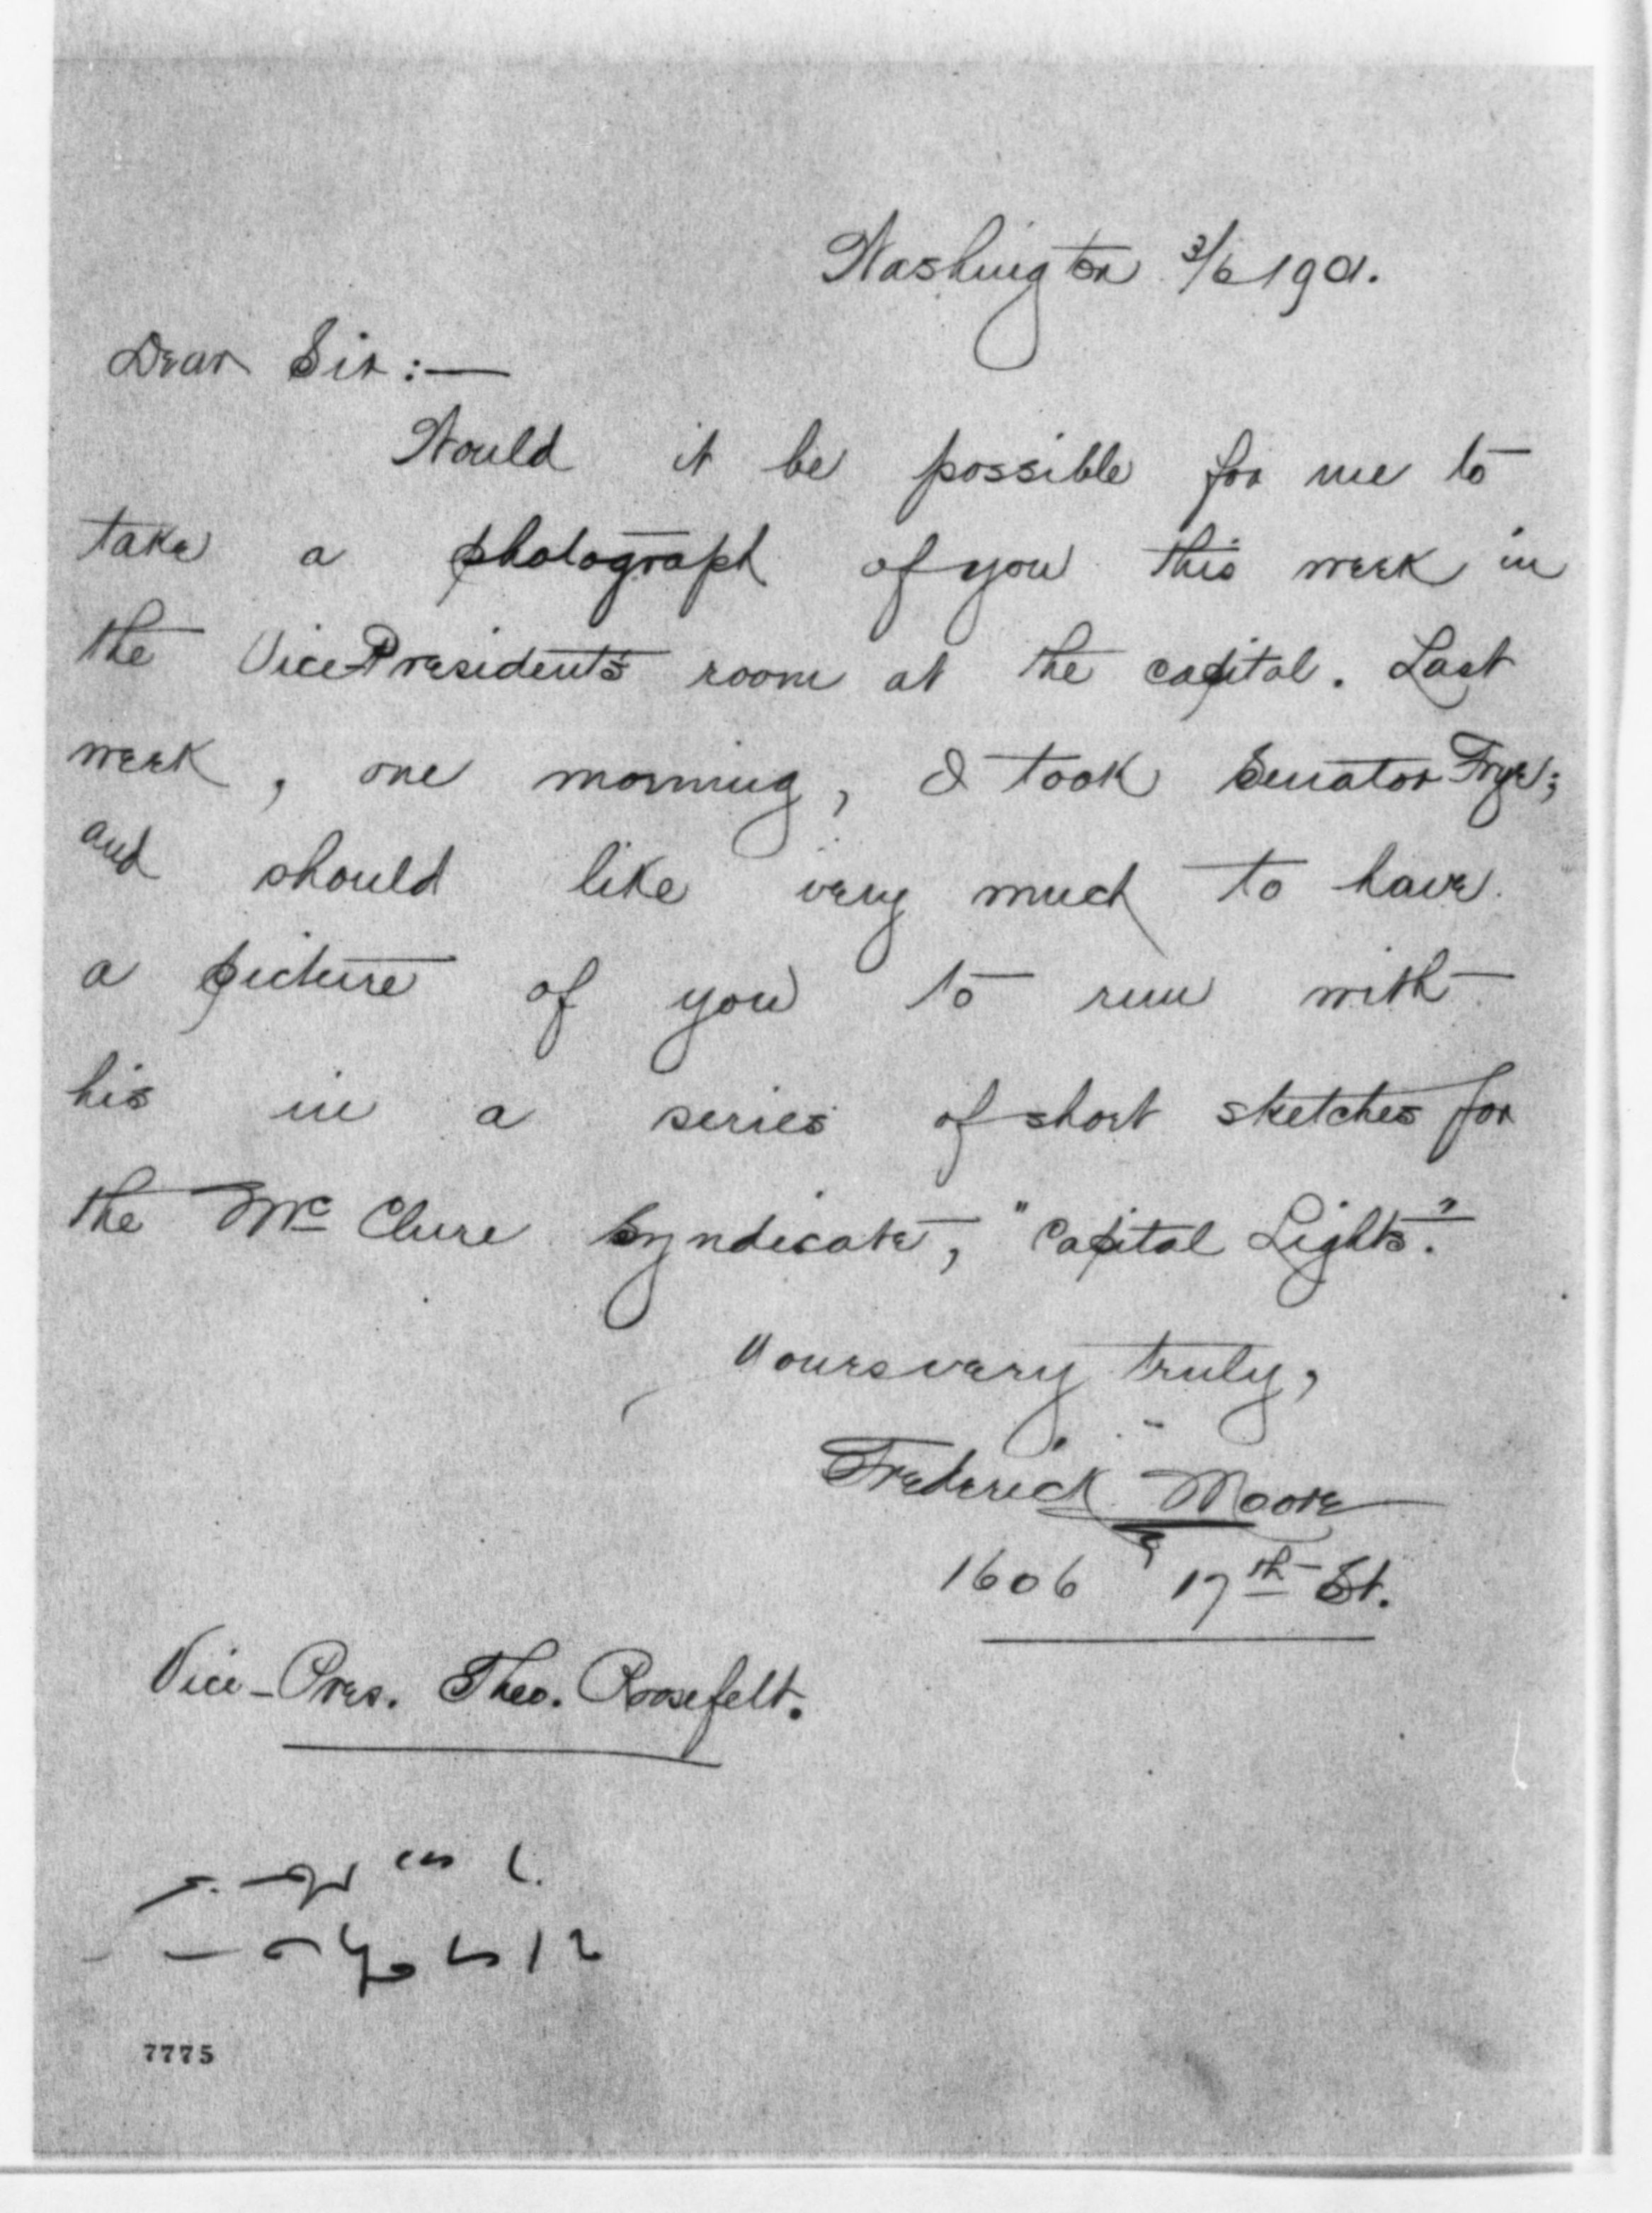 Washington 3/6 1901.
Dear Sir:—
Would it be possible for me to
take a photograph of you this week in
the Vice-Presidents room at the capital. Last
week, one morning, I took Senator Frye;
and should like very much to have
a picture of you to run with
his in a series of short sketches for
the McClure Syndicate, "Capital Lights."
Yours very truly,
Frederick Moore
1606 17th St.
Vice-Pres. Theo. Roosefelt.
7775